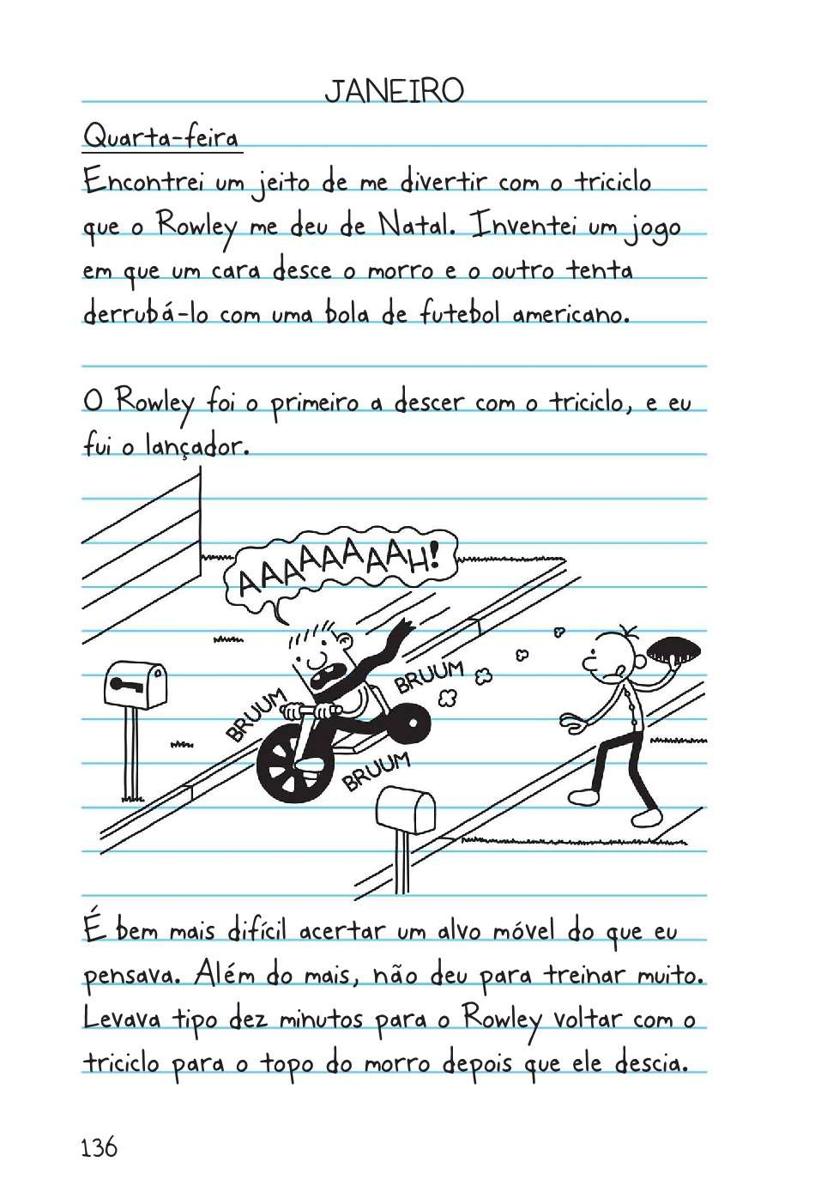 JANEIRO
Quarta-feira
Encontrei um jeito de me divertir com o triciclo
que o Rowley me deu de Natal. Inventei um jogo
em que um cara desce o morro e o outro tenta
derrubá-lo com uma bola de futebol americano.
O Rowley foi o primeiro a descer com o triciclo, e eu
fui o lançador.
AAAAAAAAH!
BRUUM
BRUUM
BRUUM
É bem mais difícil acertar um alvo móvel do que eu
pensava. Além do mais, não deu para treinar muito.
Levava tipo dez minutos para o Rowley voltar com o
triciclo para o topo do morro depois que ele descia.
136